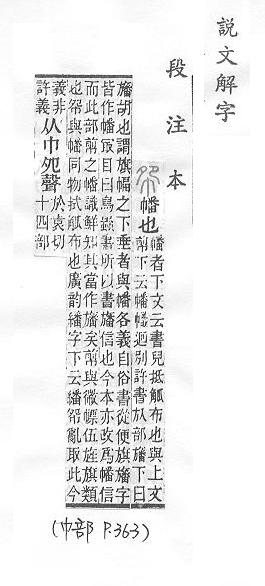 說文解字
段注本
㠾幡也
幡者下文云書兒拭觚布也與上文
前下云幡幟迥別許書㫃部旛下曰
旛胡也謂旗幅之下垂者與幡各義自俗書從便旗旛字
皆作幡敘目曰鳥蟲書所以書旛信也今本亦改爲幡信
而此部前之幡識鮮知其當作旛矣前與微幖伍旌旗類
也㠾與幡同物拭觚布也廣韵繙字下云繙㠾亂取此今
義非
許義
从巾夗聲
於袁切
十四部
(巾部 P.363)